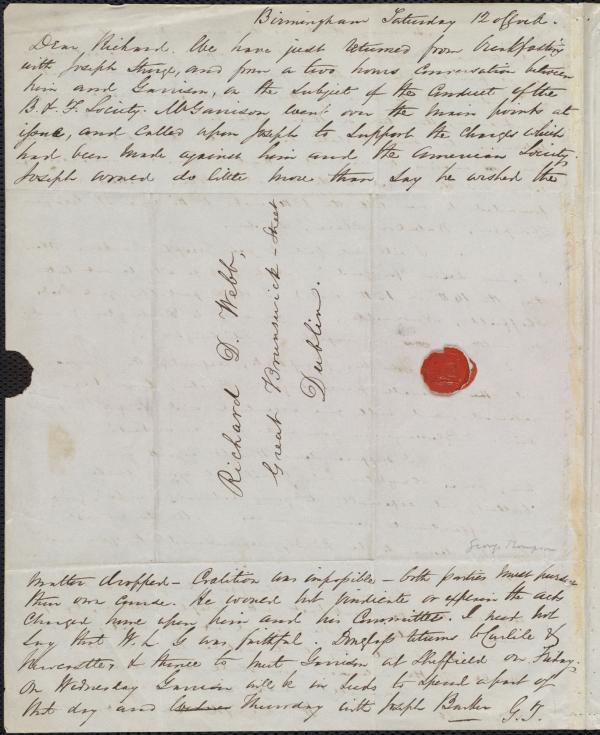 Birmingham Saturday 12 o'clock.
Dear, Richard. We have just returned from breakfasting
with Joseph Sturge, and from a two hours conversation between
him and Garrison, on the subject of the conduct of the
B. & F. Society. Mr Garrison went over the main points at
issue, and called upon Joseph to support the charges which
had been made against him and the American Society.
Joseph would do little more than say he wished the
Richard D. Webb,
Great Brunswick-Street
Dublin.
George Thompson
matter dropped – Coalition was impossible – both parties must pursue
their own course. He would not vindicate or explain the acts
charged home upon him and his Committee. I need not
say that W. L. G was faithful. Douglass returns to Carlile &
Newcastle, & thence to meet Garrison at Sheffield on Friday.
On Wednesday Garrison will be in Leeds to spend a part of
that day and Thursday with Joseph Barker G. T.